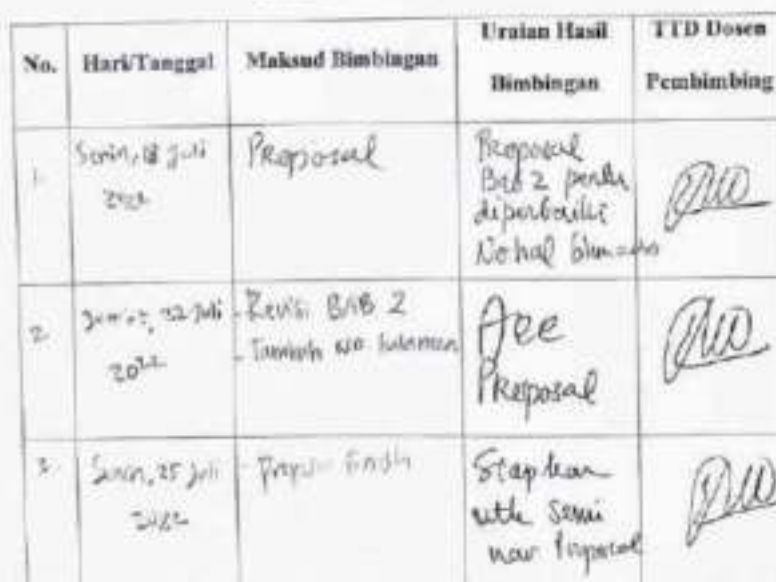 No. Hari/Tanggal Maksud Bimbingan Uraian Hasil Bimbingan TTD Dosen Pembimbing
1. Senin, 18 Juli 2022
Proposal
Proposal
Bab 2 perlu
diperbaiki
No hal
2. 22 Juli
2022
- Revisi BAB 2
- Tambah no halaman
Acc
Proposal
3. Senin, 25 Juli
2022
Siapkan
utk semi
nar Proposal